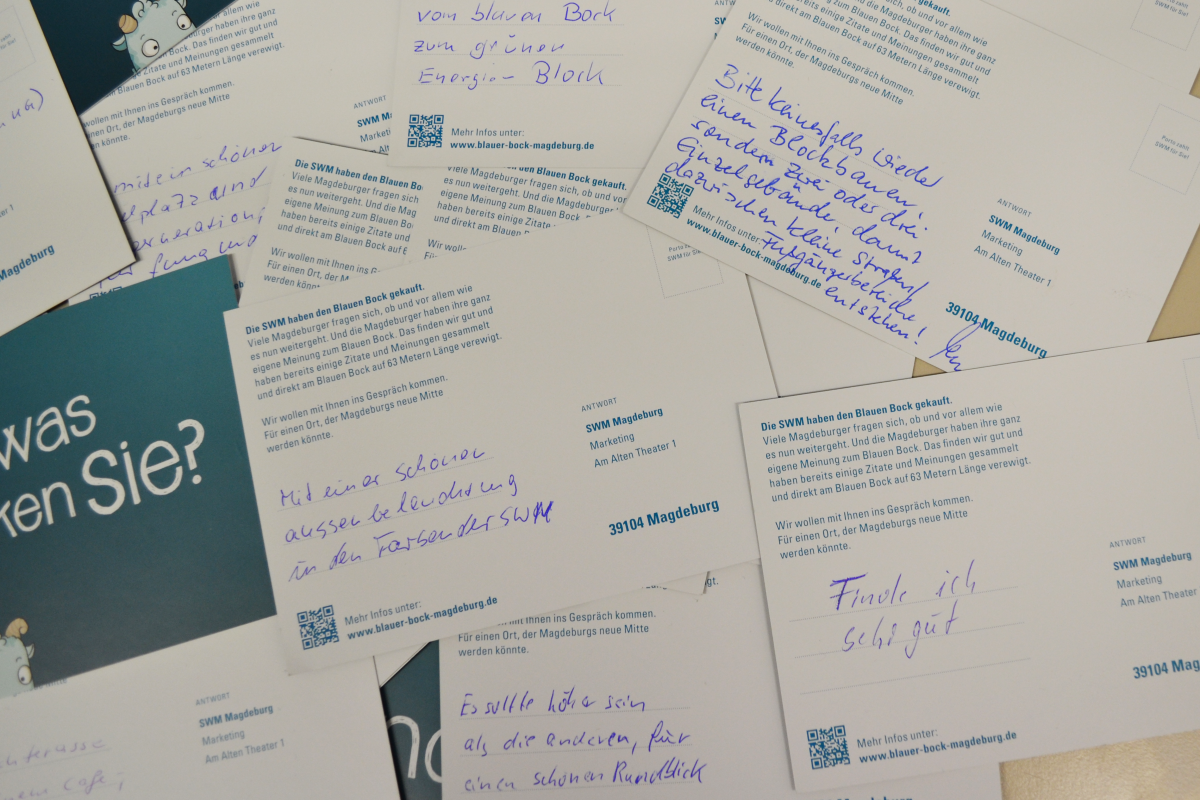 gekauft.
Viele Magdeburger fragen sich, ob und vor allem wie
es nun weitergeht. Und die Magdeburger haben ihre ganz
Bock. Das finden wir gut und
Zitate und Meinungen gesammelt
Blauen Bock auf 63 Metern Länge verewigt.
wollen mit Ihnen ins Gespräch kommen.
einen Ort, der Magdeburgs neue Mitte
werden könnte.
ANTWORT
SWM
Marketing
Am Alten
mit ein schönen
und
Magdeburg
vom blauen Bock
zum grünen
Energie-Block
Mehr Infos unter:
www.blauer-bock-magdeburg.de
ANTWORT
SWM
Marketing
fragen sich, ob und vor allem wie
es nun weitergeht. Und die Magdeburger haben ihre ganz
eigene Meinung zum Blauen Bock. Das finden wir gut und
haben bereits einige Zitate und Meinungen gesammelt
und direkt am Blauen Bock auf 63 Metern Länge verewigt.
Wir wollen mit Ihnen ins Gespräch kommen.
Für einen Ort, der Magdeburgs neue Mitte
werden könnte.
Bitte keinesfalls wieder
einen Block bauen,
sondern zwei oder drei
Einzelgebäude, damit
dazwischen kleine Straßen/
Fußgängerbereiche
entstehen!
Mehr Infos unter:
www.blauer-bock-magdeburg.de
Porto zahlt
SWM für Sie!
ANTWORT
SWM Magdeburg
Marketing
Am Alten Theater 1
39104 Magdeburg
Die SWM haben den Blauen Bo
Viele Magdeburger fragen sich,
es nun weitergeht. Und die Mag
eigene Meinung zum Blauen B
haben bereits einige Zitate
und direkt am Blauen Bock auf 6
Wir wollen mit Ihnen ins
Für einen Ort, der Mag
werden könnte.
Die SWM haben den Blauen Bock gekauft.
Viele Magdeburger fragen sich, ob und vor allem wie
es nun weitergeht. Und die Magdeburger haben ihre ganz
eigene Meinung zum Blauen Bock. Das finden wir gut und
haben bereits einige Zitate und Meinungen gesammelt
und direkt am Blauen Bock auf 63 Metern Länge verewigt.
Wir wollen mit Ihnen ins Gespräch kommen.
Für einen Ort, der Magdeburgs neue Mitte
werden könnte.
Mit einer schönen
aussenbeleuchtung
in den Farben der SWM
Mehr Infos unter:
www.blauer-bock-magdeburg.de
ANTWORT
SWM Magdeburg
Marketing
Am Alten Theater 1
39104 Magdeburg
was
ken Sie?
Die SWM haben den Blauen Bock gekauft.
Viele Magdeburger fragen sich, ob und vor allem wie
es nun weitergeht. Und die Magdeburger haben ihre ganz
eigene Meinung zum Blauen Bock. Das finden wir gut und
haben bereits einige Zitate und Meinungen gesammelt
und direkt am Blauen Bock auf 63 Metern Länge verewigt.
Wir wollen mit Ihnen ins Gespräch kommen.
Für einen Ort, der Magdeburgs neue Mitte
werden könnte.
Finde ich
sehr gut
Mehr Infos unter:
www.blauer-bock-magdeburg.de
ANTWORT
SWM Magdeburg
Marketing
Am Alten Theater
39104 Mag
Wir wollen mit Ihnen ins Gespräch kommen.
Für einen Ort, der Magdeburgs neue Mitte
werden könnte.
Es sollte höher sein
als die anderen, für
einen schönen Rundblick
ANTWORT
SWM Magdeburg
Marketing
Am Alten Theater 1